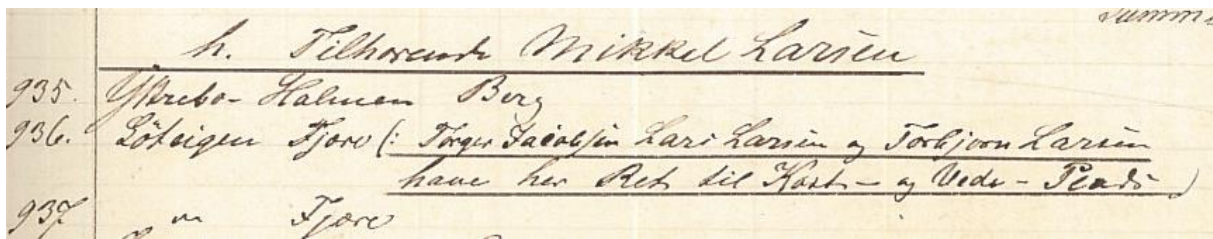 h. Tilhørende Mikkel Larsen
935. Yttrebø-Holmen Berg
936. Løteigen Fjøre (: Torger Jacobsen Lars Larsen og Torbjørn Larsen
have her Ret til Kast- og Vede-Plads)
937. " Fjære